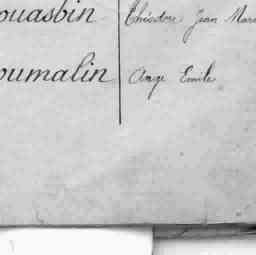 ouasbin Théodore Jean Mari
oumalin Ange Emile